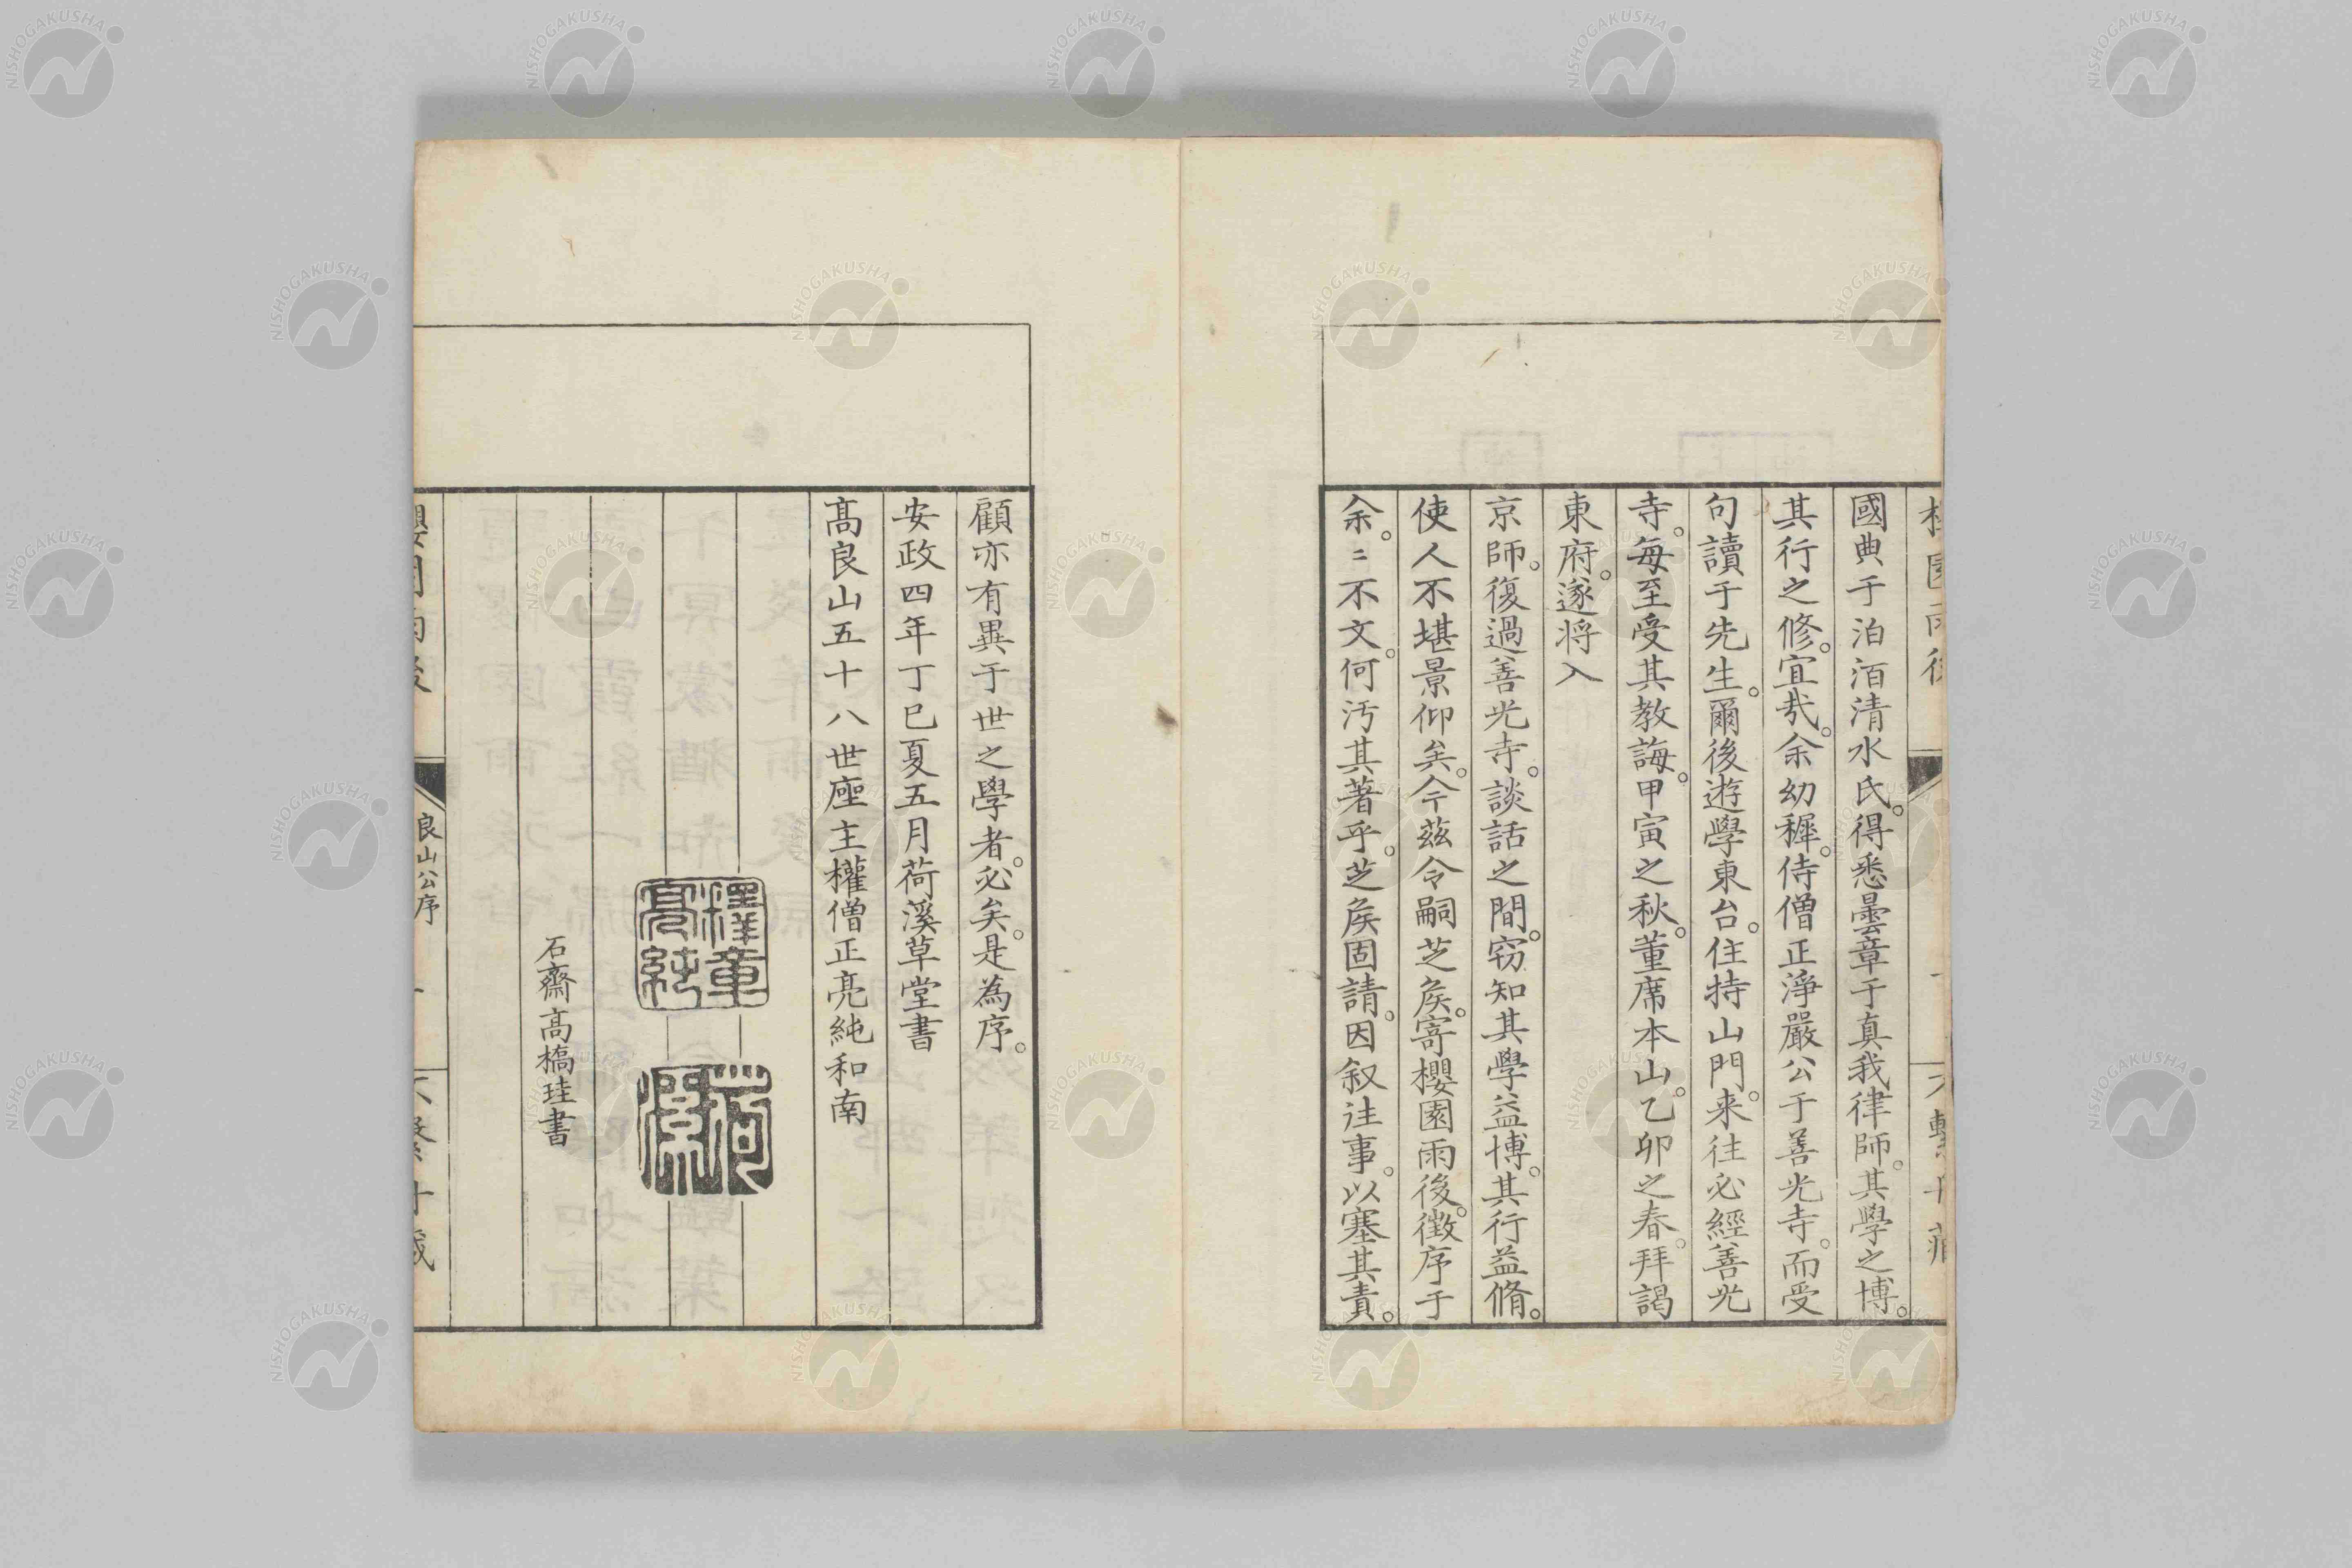 國典于泊洦清水氏。得悉曇章于真我律師。其學之博。
其行之修。宜哉。余幼穉。侍僧正淨嚴公于善光寺。而受
句讀于先生。爾後遊學東台。住持山門。来往必經善光
寺。每至受其教誨。甲寅之秋。董席本山。乙卯之春。拜謁
東府。遂将入
京師。復過善光寺。談話之間。窃知其學益博。其行益脩。
使人不堪景仰矣。今茲令嗣芝矦。寄櫻園雨後。徵序于
余。〻不文。何汚其著乎。芝矦固請。因叙往事。以塞其責。
顧亦有異于世之學者。必矣。是為序。
安政四年丁巳夏五月荷溪草堂書
髙良山五十八世座主權僧正亮純和南
釋章亮純
荷溪
石齋髙橋珪書
良山公序
NISHOGAKUSHA